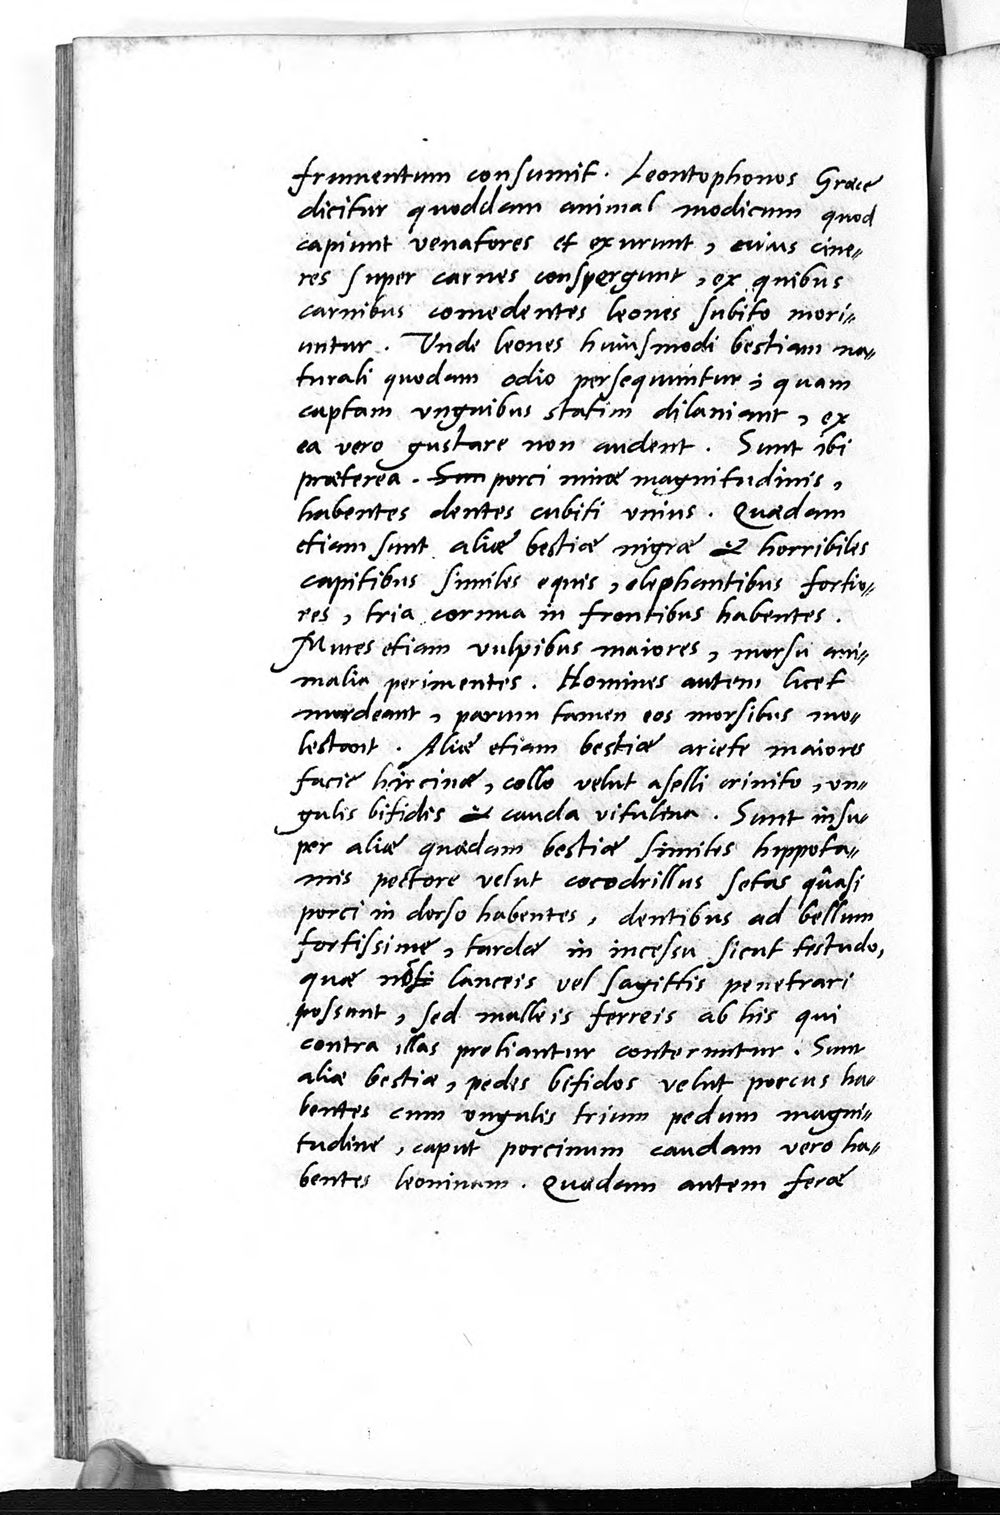 frumentum consumit. Leontophonos Græce
dicitur quoddam animal modicum quod
capiunt venatores et exurunt, cuius cine=
res super carnes conspergunt, ex quibus
carnibus comedentes leones subito mori=
untur. Unde leones huiusmodi bestiam na=
turali quodam odio persequuntur; quam
captam vnguibus statim dilaniant, ex
ea vero gustare non audent. Sunt ibi
præterea. Sun porci miræ magnitudinis,
habentes dentes cubiti vnius. Quædam
etiam sunt aliæ bestiæ nigræ & horribiles
capitibus similes equis, elephantibus fortio=
res, tria cornua in frontibus habentes.
Mures etiam vulpibus maiores, morsu ani=
malia perimentes. Homines autem licet
mordeant, parum tamen eos morsibus mo=
lestant. Aliæ etiam bestiæ ariete maiores
facie hircinæ, collo velut aselli crinito, vn=
gulis bifidis & cauda vitulina. Sunt insu=
per aliæ quædam bestiæ similes hippota=
mis pectore velut cocodrillus setas quasi
porci in dorso habentes, dentibus ad bellum
fortissime, tardæ in incessu sicut testudo,
quæ nō lanceis vel sagittis penetrari
possunt, sed malleis ferreis ab his qui
contra illas preliantur conteruntur. Sunt
aliæ bestiæ, pedes bifidos velut porcus ha=
bentes cum vngulis trium pedum magni=
tudine, caput porcinum caudam vero ha=
bentes leoninam. Quædam autem feræ